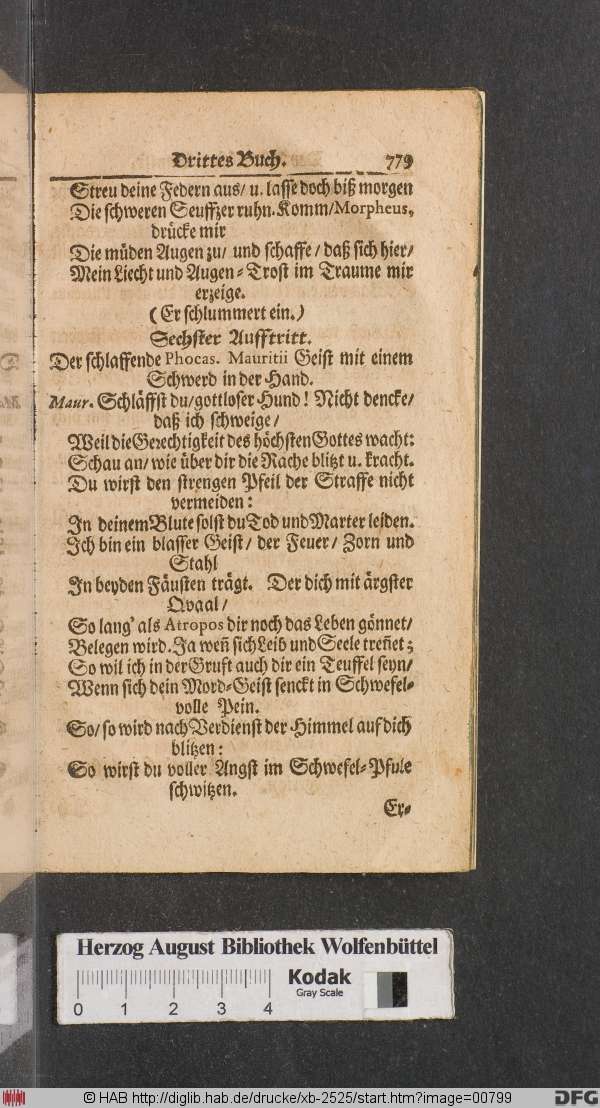 Drittes Buch. 779
Streu deine Federn aus/ u. lasse doch biß morgen
Die schweren Seuffzer ruhn. Komm/ Morpheus,
drücke mir
Die müden Augen zu/ und schaffe/ daß sich hier/
Mein Liecht und Augen-Trost im Traume mir
erzeige.
(Er schlummert ein.)
Sechster Aufftritt.
Der schlaffende Phocas. Mauritii Geist mit einem
Schwerd in der Hand.
Maur. Schläffst du/ gottloser Hund! Nicht dencke/
daß ich schweige/
Weil die Gerechtigkeit des höchsten Gottes wacht:
Schau an/ wie über dir die Rache blitzt u. kracht.
Du wirst den strengen Pfeil der Straffe nicht
vermeiden:
In deinem Blute solst du Tod und Marter leiden.
Ich bin ein blasser Geist/ der Feuer/ Zorn und
Stahl
In beyden Fäusten trägt. Der dich mit ärgster
Qvaal/
So lang' als Atropos dir noch das Leben gönnet/
Belegen wird. Ja weñ sich Leib und Seele treñet;
So wil ich in der Gruft auch dir ein Teuffel seyn/
Wenn sich dein Mord-Geist senckt in Schwefel-
volle Pein.
So/ so wird nach Verdienst der Himmel auf dich
blitzen:
So wirst du voller Angst im Schwefel-Pfule
schwitzen.
Er-
Herzog August Bibliothek Wolfenbüttel
Kodak
Gray Scale
0 1 2 3 4
© HAB http://diglib.hab.de/drucke/xb-2525/start.htm?image=00799
DFG